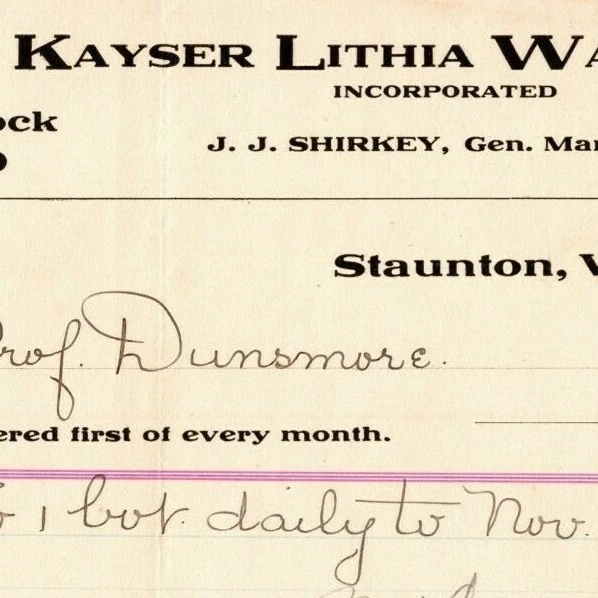 KAYSER LITHIA WA
INCORPORATED
ock
J. J. SHIRKEY, Gen. Man
Staunton, V
Prof. Dunsmore.
ered first of every month.
1 bot. daily to Nov.